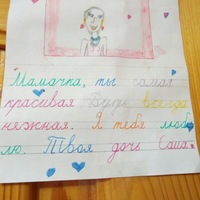 Мамачка, ты самая
красивая Будь всегда
нежная. Я тебя люб
лю. Твоя дочь Саша.